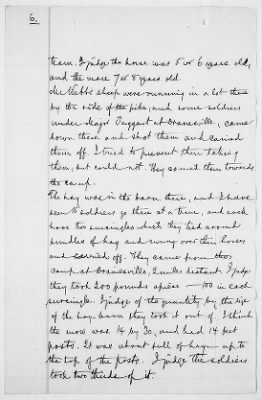 6.
team. I judge the horse was 5 or 6 years old,
and the mare 7 or 8 years old
Mr Webbs sheep were running in a lot there
by the side of the pike, and some soldiers
under Major Taggart at Dranesville, came
down there and shot them and carried
them off. I tried to prevent their taking
them, but could not. They carried them towards
the camp.
The hay was in the barn there, and I have
seen soldiers go there at a time, and each
have two surcingles which they tied around
bundles of hay and swung over their horses
and carried off. They came from the
camp at Dranesville, 2 miles distant. I judge
they took 200 pounds apiece — 100 in each
surcingle. I judge of the quantity by the size
of the hay barn they took it out of. I think
the mow was 14 by 30, and had 14 feet
posts. It was about full of hay up to
the top of the posts. I judge the soldiers
took two thirds of it.